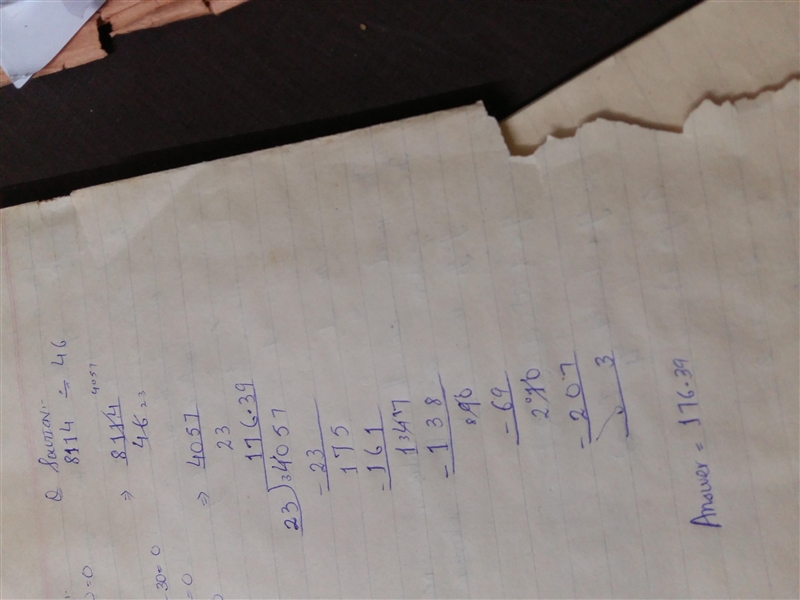 Q Solution:-
8114 ÷ 46
⇒ 8114 4057
46 23
⇒ 4057
23
176.39
23)4057
-23
175
-161
147
-138
90
-69
210
-207
3
Answer = 176.39
)=0
30=0
=0